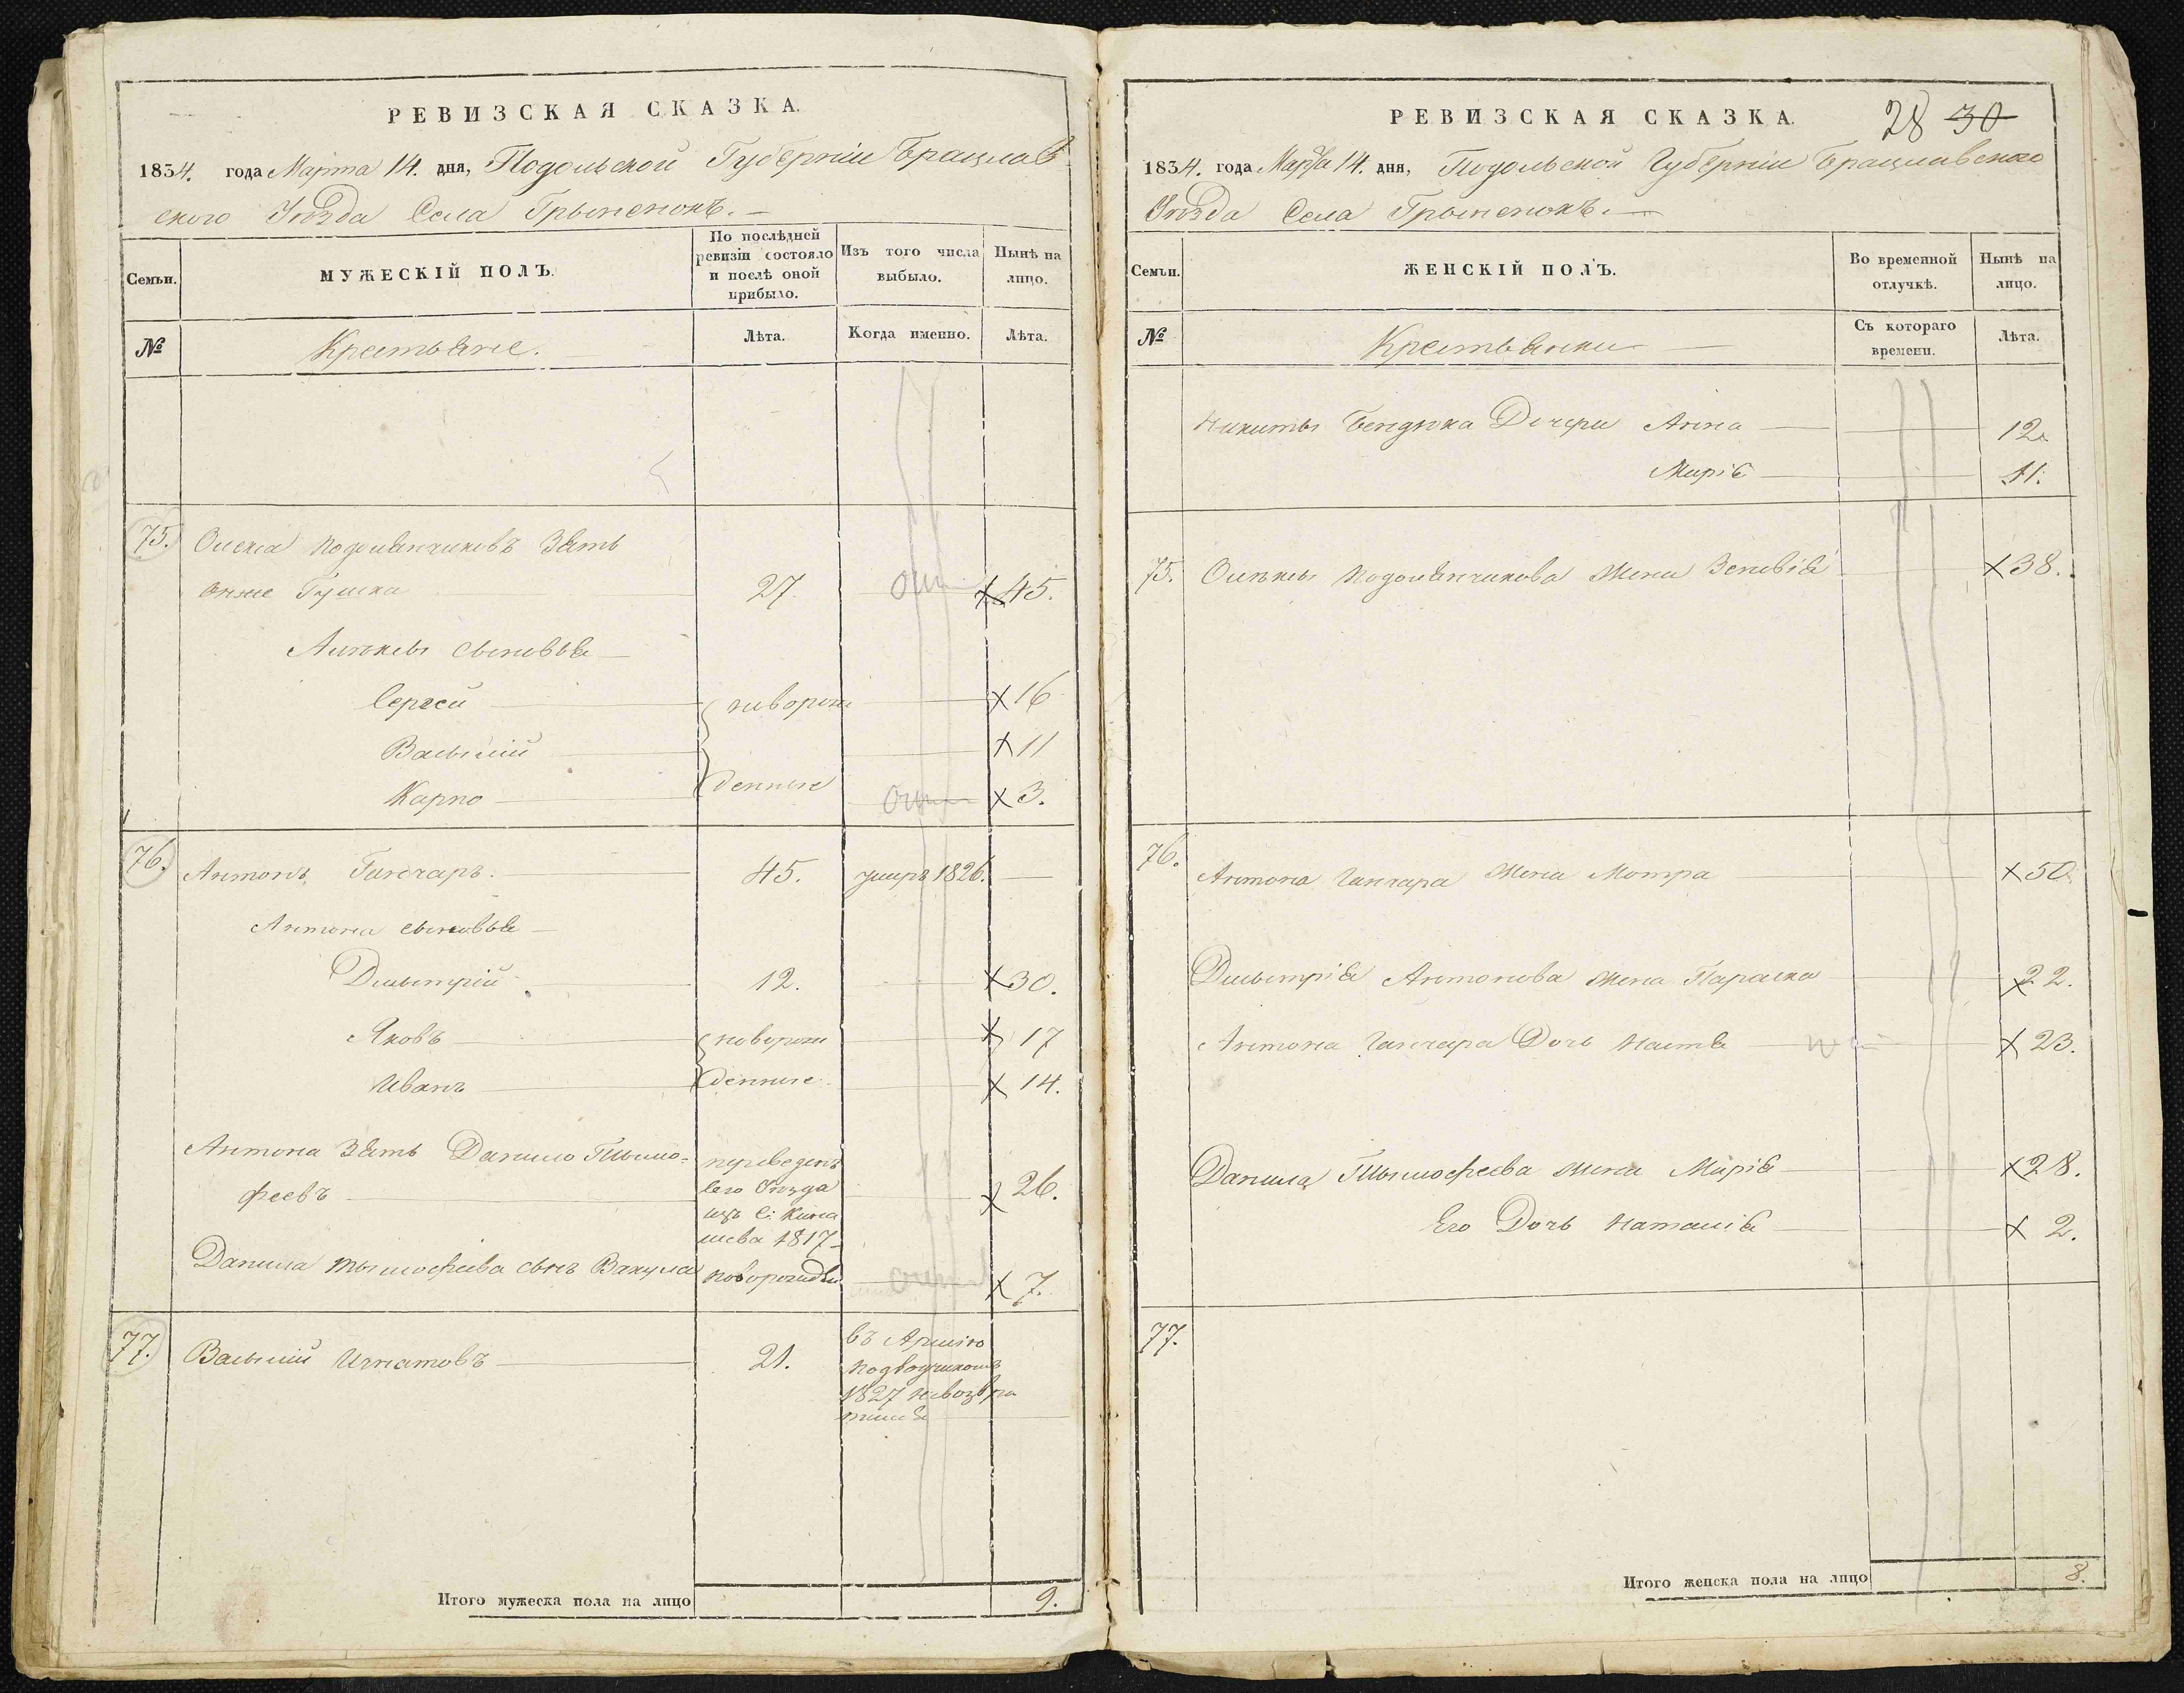 РЕВИЗСКАЯ СКАЗКА.
1834. года Марта 14. дня, Подольской Губерніи Брацлав
ского Уѣзда Села Грыненокъ.
Семьи.
МУЖЕСКІЙ ПОЛЪ.
По послѣдней
ревизіи состояло
и послѣ оной
прибыло.
Изъ того числа
выбыло.
Нынѣ на
лицо.
№
Крестьяне.
Лѣта.
Когда именно.
Лѣта.
75. Олекса Подолянчиковъ Зять
онже Гушка 27 45.
Алѣксы сыновья
Сергей новорож 16
Васылій 11
Карпо денные 3.
76. Антонъ Ганчаръ. 45. умеръ 1826.
Антона сыновья
Дмытрій 12. 30.
Яковъ новорож 17
Иванъ денные. 14.
Антона Зять Данило Тымо=
феевъ 26.
переведенъ
сего Уѣзда
изъ С:
шева 1817
Данила Тымофеева сынъ Вакула новорожден 7.
77. Васылій Игнатовъ 21.
въ Армію
подводчикомъ
1827 невозвра
тился
Итого мужеска пола на лицо 9.
РЕВИЗСКАЯ СКАЗКА.
28 30
1834. года Марта 14. дня, Подольской Губерніи Брацлавского
Уѣзда Села Грыненокъ.
Семьи.
ЖЕНСКІЙ ПОЛЪ.
Во временной
отлучкѣ.
Нынѣ на
лицо.
№
Крестьянки
Съ котораго
времени.
Лѣта.
Никиты Бендюка Дочери Анна 12.
Марія 11.
75. Олѣксы Подолянчикова жена Зеновія 38.
76. Антона Ганчара жена Мотра 50.
Дмытрія Антонова жена Параска 22.
Антона Ганчара Дочь Настя 23.
Данила Тымофеева жена Марія 28.
Его Дочь Наталія 2.
77.
Итого женска пола на лицо 8.